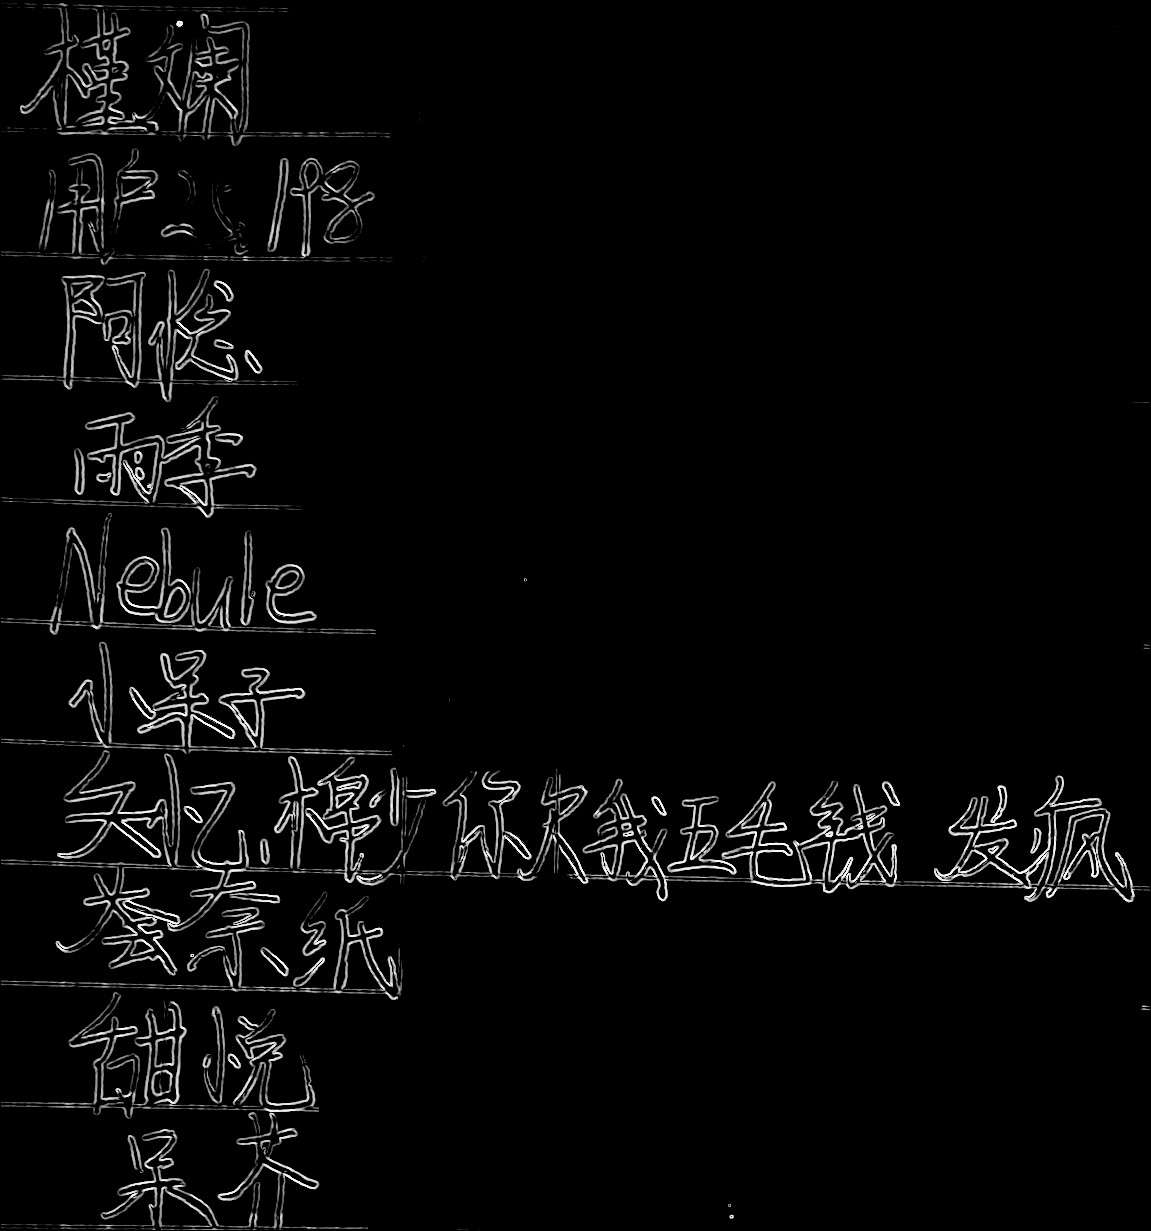 槿娴
用户 198
阿悠、
雨季
Nebule
小呆子
失忆、棉 你欠我五毛钱 发疯
奈、纸
甜悦
呆齐